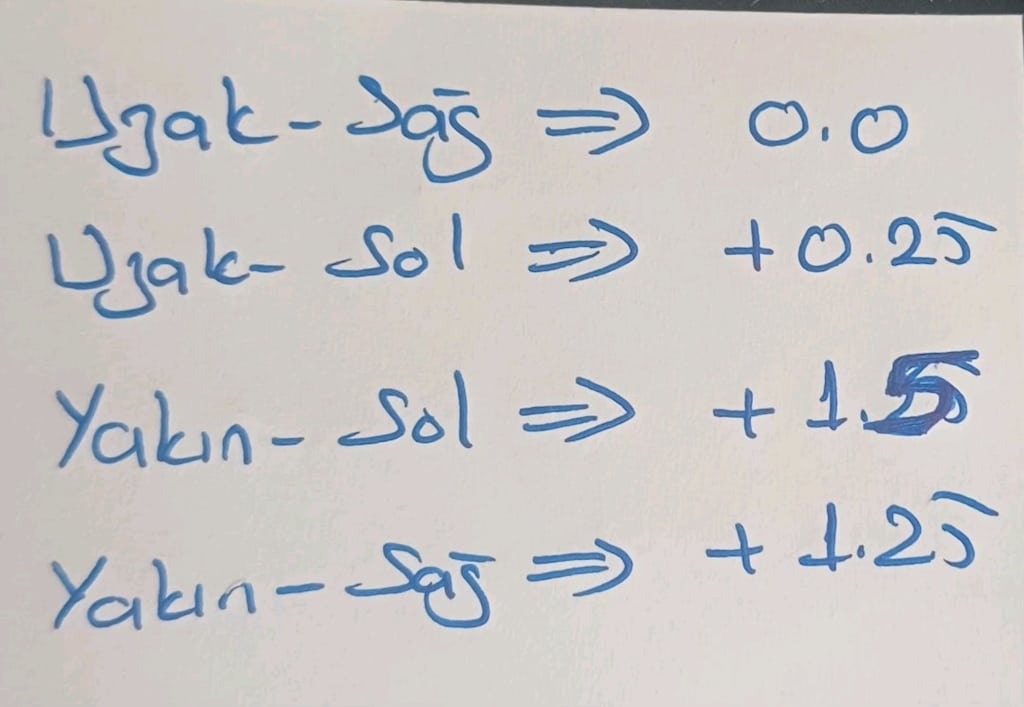 Uzak - Sağ => 0.0
Uzak - Sol => +0.25
Yakın - Sol => +1.5
Yakın - Sağ => +1.25